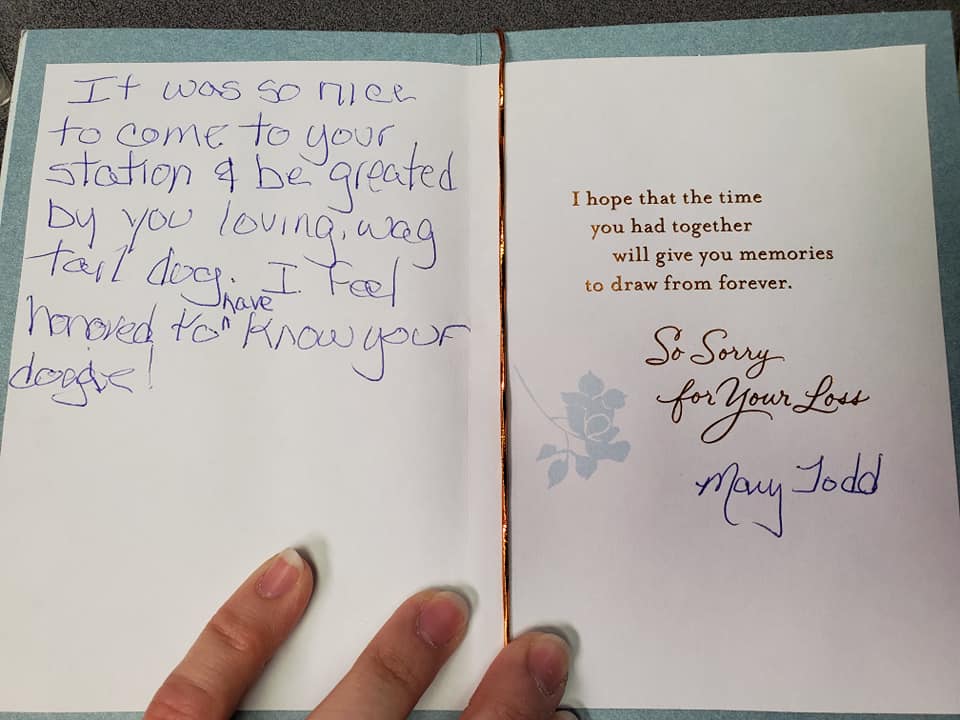 It was so nice
to come to your
station & be greated
by you loving, wag
tail dog. I feel
honored to have know your
doggie!
I hope that the time
you had together
will give you memories
to draw from forever.
So Sorry
for Your Loss
Mary Todd